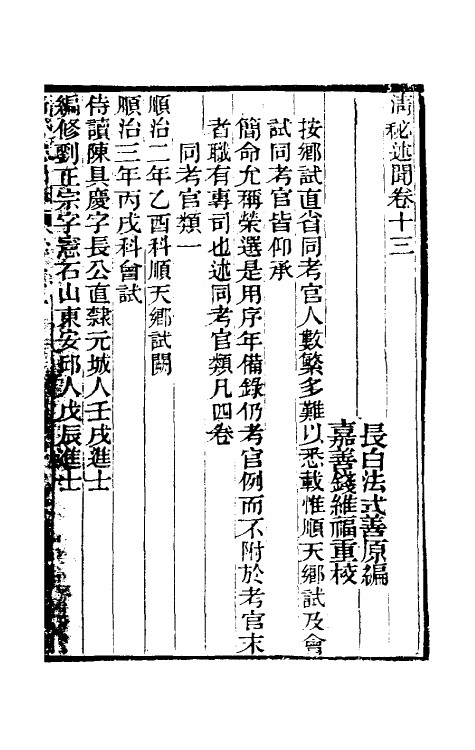 清秘述聞卷十三
長白法式善原編
嘉善錢維福重校
按鄉試直省同考官人數繁多難以悉載惟順天鄉試及會
試同考官皆仰承
簡命尤稱榮選是用序年備錄仍考官例而不附於考官末
者職有專司也述同考官類凡四卷
同考官類一
順治二年乙酉科順天鄉試闕
順治三年丙戌科會試
侍讀陳具慶字長公直隸元城人壬戌進士
編修劉正宗字憲石山東安邱人戊辰進士